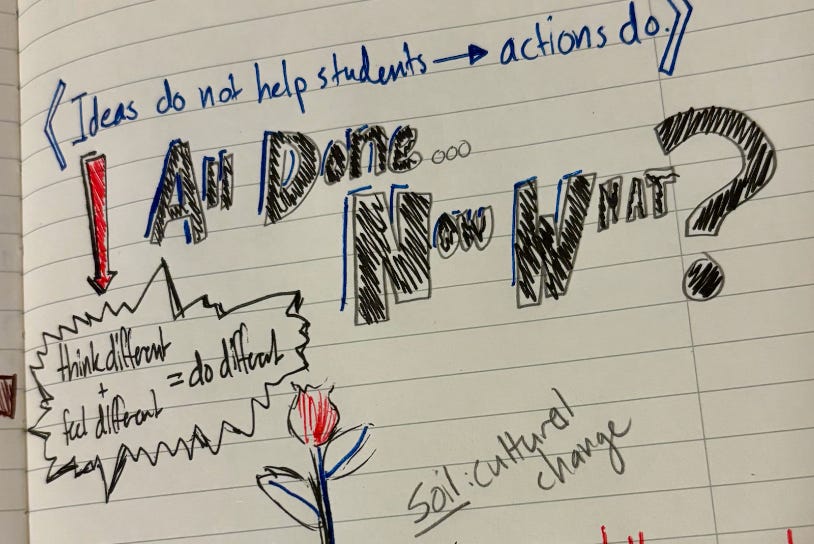 Ideas do not help students → actions do.
All Done...
Now What?
think different
+
feel different
= do different
Soil: cultural
change